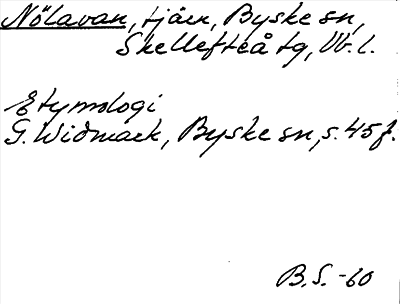 Nölavan, tjärn, Byske sn,
Skellefteå tg, Vb. l.
Etymologi
G. Widmark, Byske sn, s. 45 f.
B.S. -60